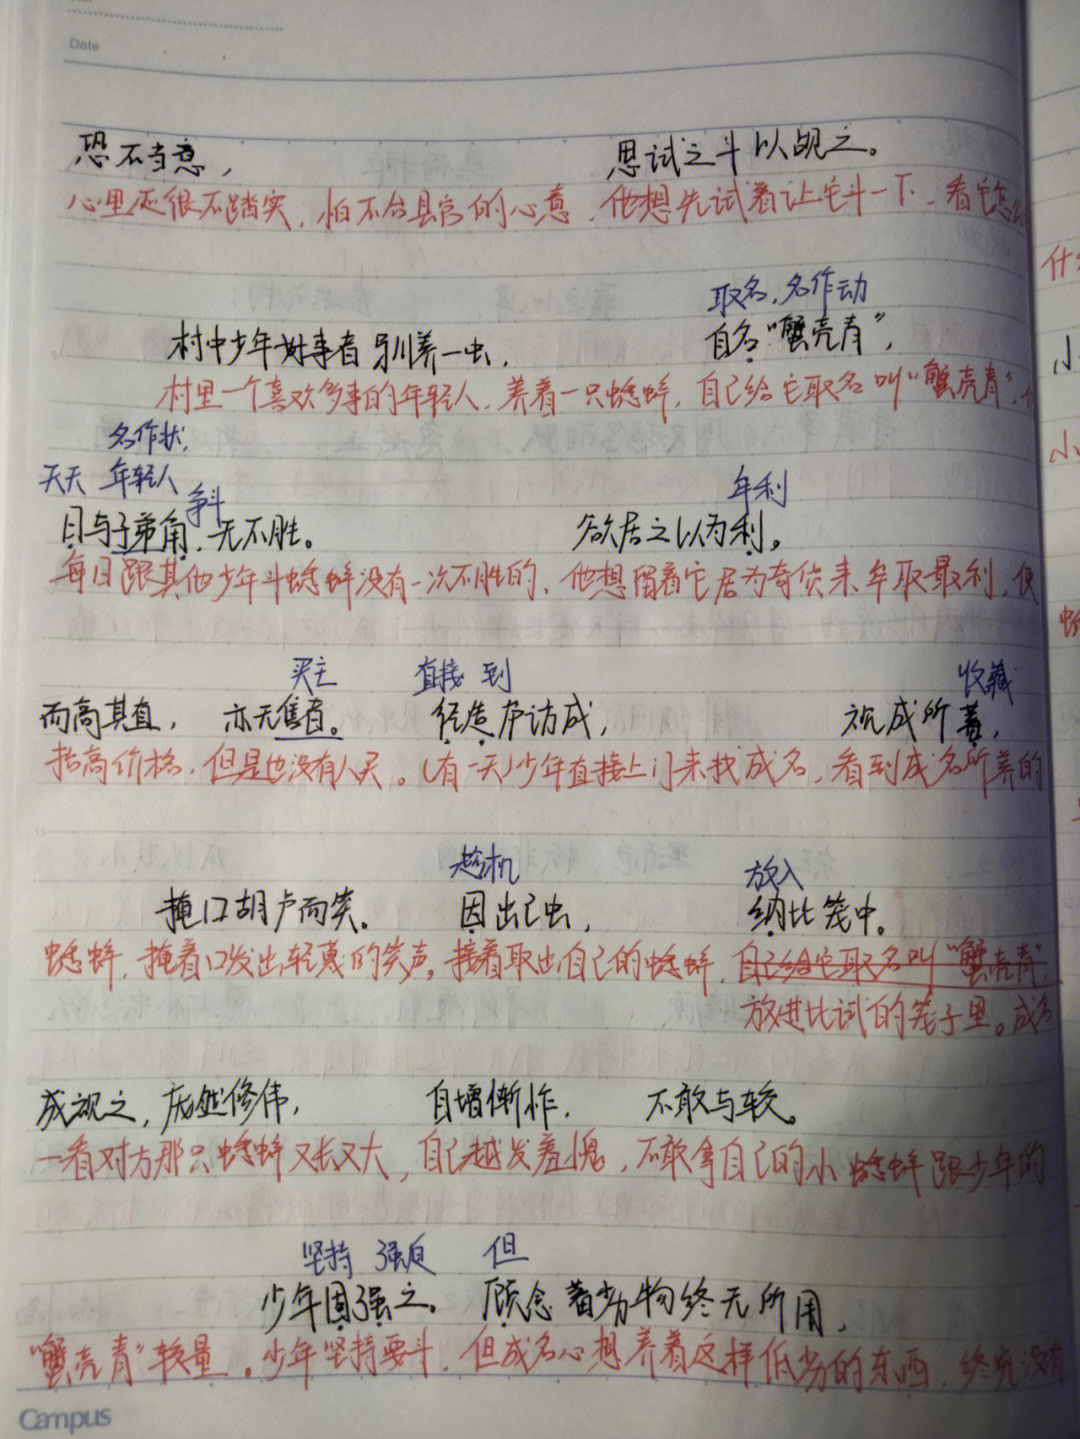 Date
恐不当意， 思试之斗以觇之。
心里还很不踏实，怕不合县官的心意，他想先试着让它斗一下，看它怎么
取名，名作动
村中少年好事者驯养一虫， 自名“蟹壳青”，
村里一个喜欢多事的年轻人，养着一只蟋蟀，自己给它取名叫“蟹壳青”，
名作状，
天天 年轻人 争斗 牟利
日与子弟角，无不胜。 欲居之以为利。
每日跟其他少年斗蟋蟀没有一次不胜的，他想留着它居为奇货来牟取暴利，便
买主 直接 到 收藏
而高其直， 亦无售者。 径造庐访成， 视成所蓄，
抬高价格，但是也没有人买。（有一天）少年直接上门来找成名，看到成名所养的
趁机 放入
掩口胡卢而笑。 因出己虫， 纳比笼中。
蟋蟀，掩着口发出轻蔑的笑声。接着取出自己的蟋蟀，自己给它取名叫“蟹壳青”，
放进比试的笼子里。成名
成视之，庞然修伟， 自增惭怍， 不敢与较。
一看对方那只蟋蟀又长又大，自己越发羞愧，不敢拿自己的小蟋蟀跟少年的
坚持 强迫 但
少年固强之。 顾念蓄劣物终无所用，
“蟹壳青”较量。少年坚持要斗，但成名心想养着这样低劣的东西，终究没有
Campus
什
小
小